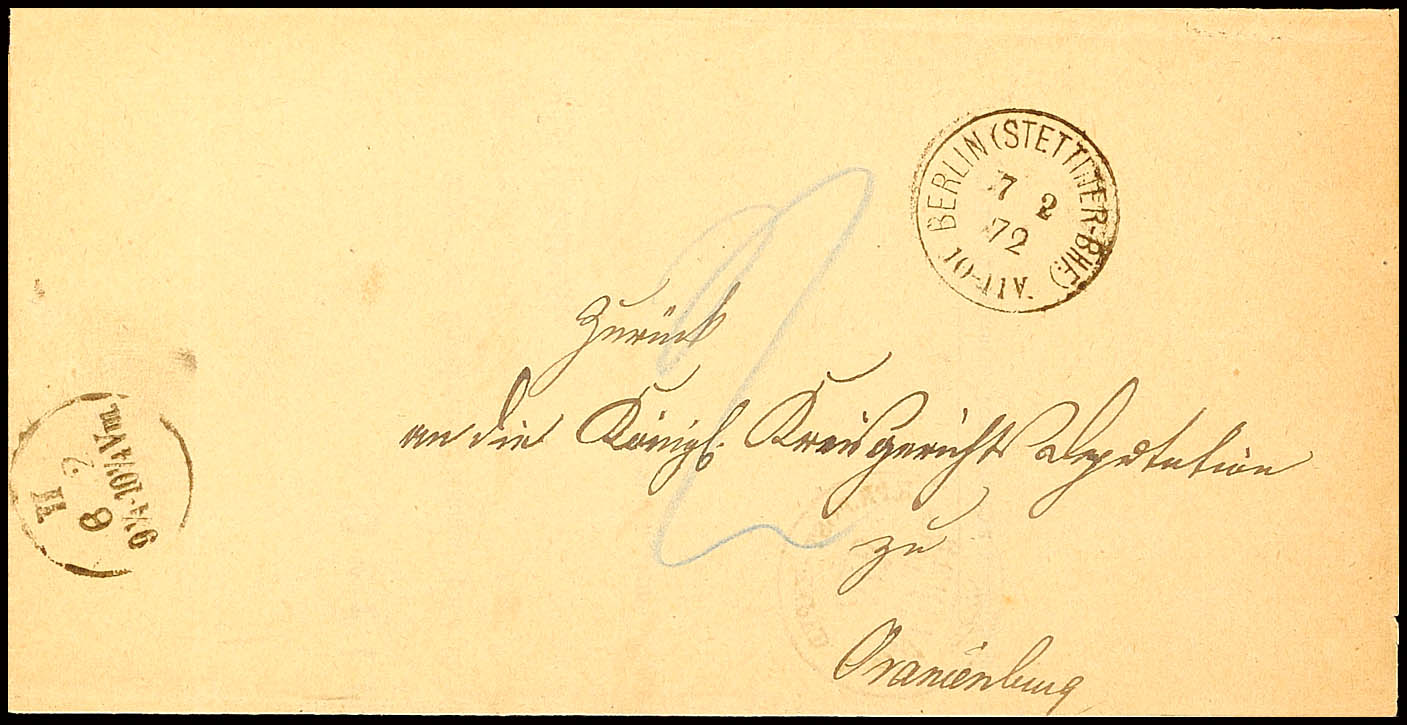 BERLIN (STETTINER-BHF.)
7 2
72
10-11 V.
2
Zurück
an die Königl. Kreisgerichts Deputation
zu
Oranienburg
II
8 2
9¼-10¼ Vm.